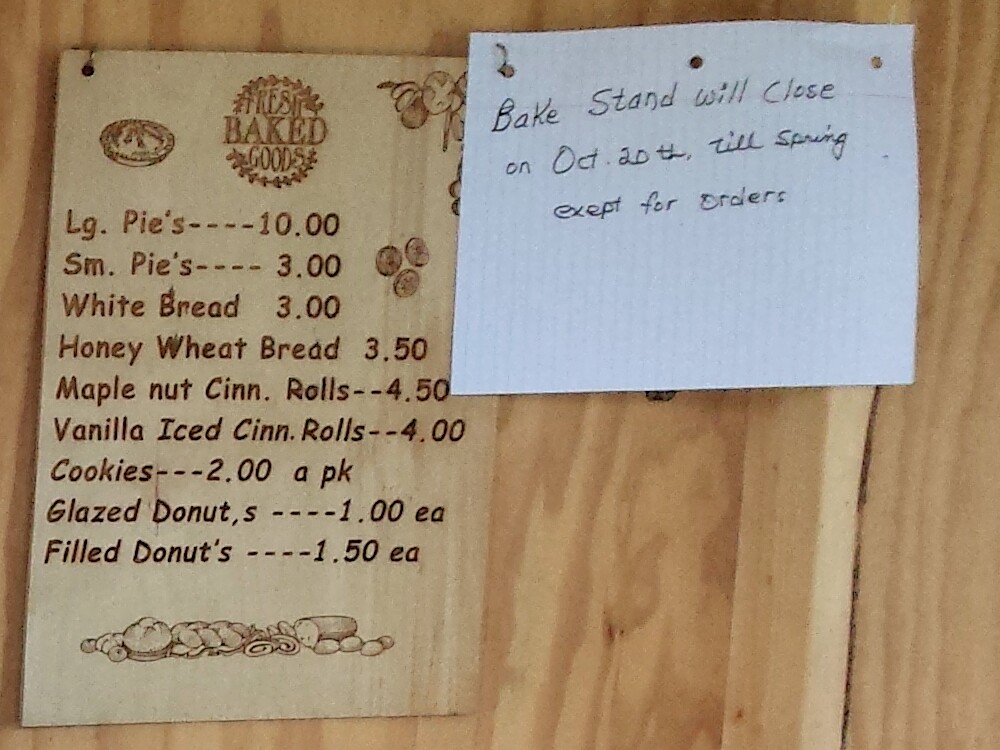 FRESH
BAKED
GOODS
Lg. Pie's----10.00
Sm. Pie's---- 3.00
White Bread 3.00
Honey Wheat Bread 3.50
Maple nut Cinn. Rolls--4.50
Vanilla Iced Cinn. Rolls--4.00
Cookies---2.00 a pk
Glazed Donut,s ----1.00 ea
Filled Donut's ----1.50 ea
Bake Stand will Close
on Oct. 20th, till spring
exept for orders